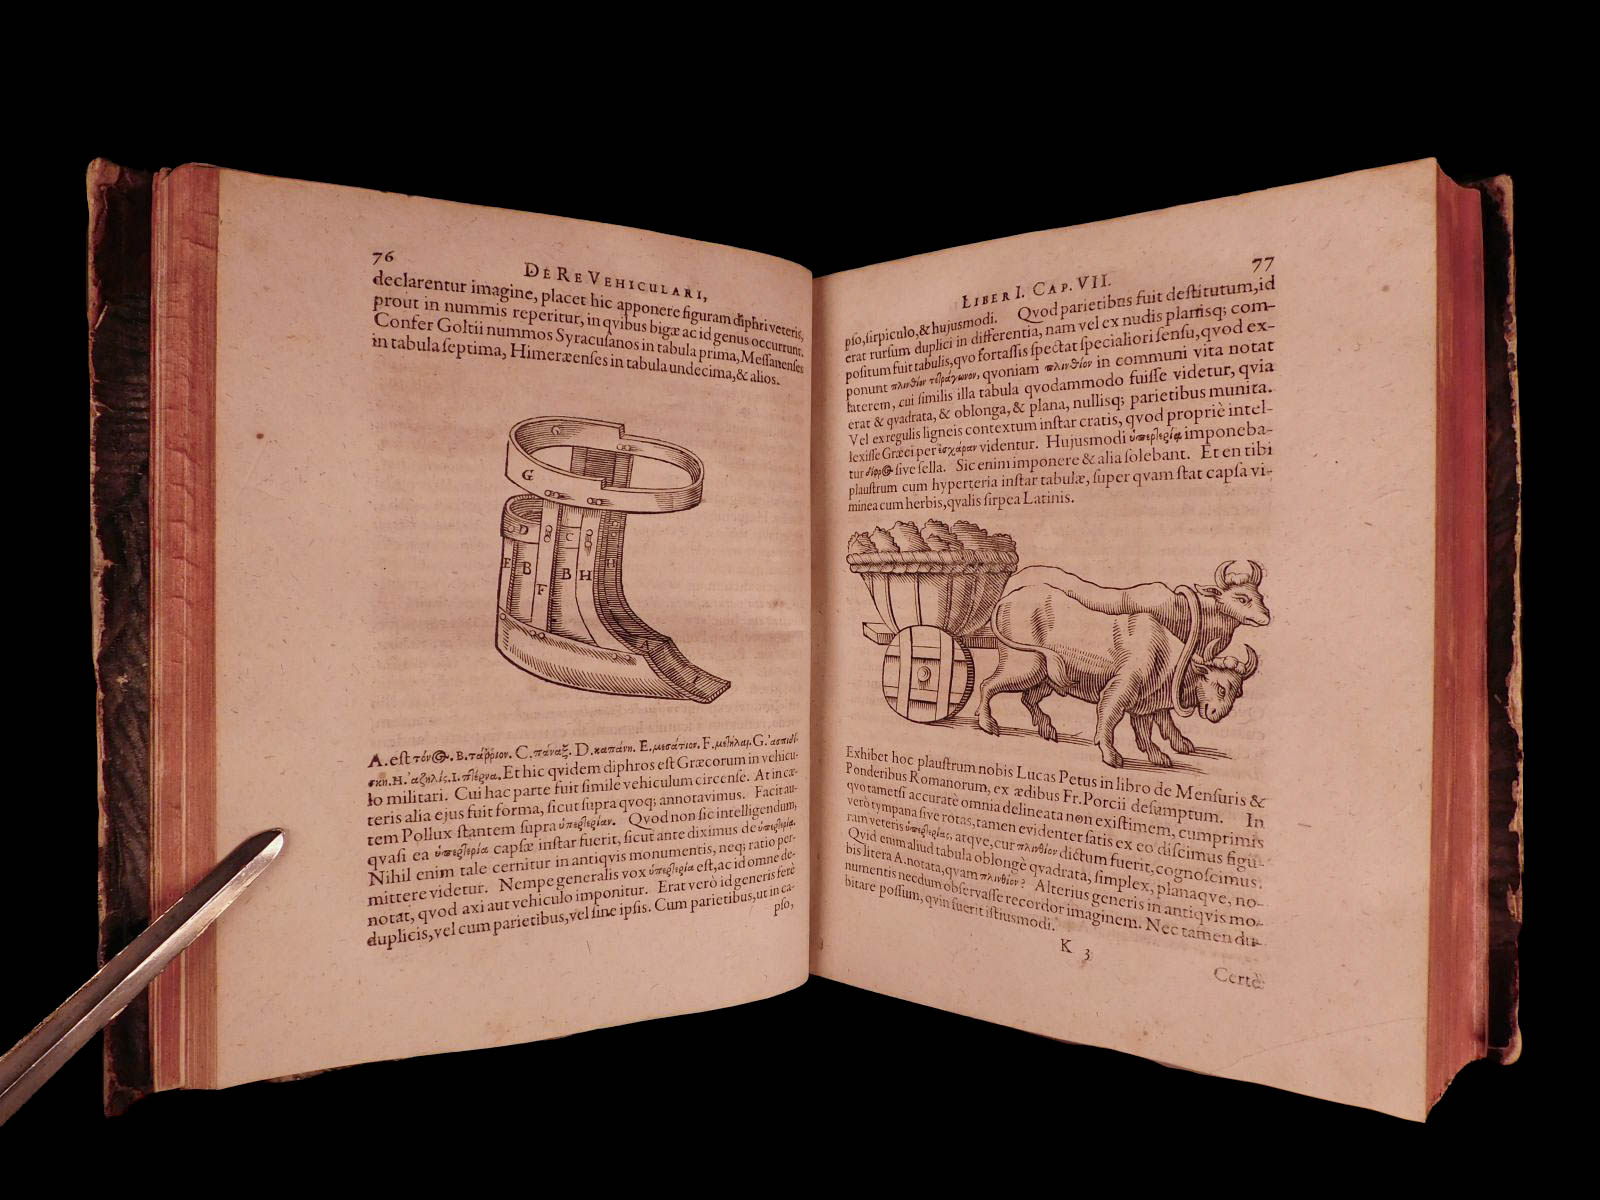 76
DE RE VEHICULARI,
declarentur imagine, placet hic apponere figuram diphri veteris,
prout in nummis reperitur, in qvibus bigæ ac id genus occurrunt.
Confer Goltii nummos Syracusanos in tabula prima, Messanenses
in tabula septima, Himeræenses in tabula undecima, & alios.
G
G
D
C
E
B
F
B
H
H
A
I
A. est τόν. B. ταῤῥίον. C. πάναξ. D. καπάνη. E. μεσάτιον. F. G. ἀσπιδί-
σκη. H. I. πτέρνα. Et hic qvidem diphros est Græcorum in vehicu-
lo militari. Cui hac parte fuit simile vehiculum circense. At in cæ-
teris alia ejus fuit forma, sicut supra quoq; annotavimus. Facit au-
tem Pollux stantem supra ὑπερτερίαν. Qvod non sic intelligendum,
qvasi ea ὑπερτερία capsæ instar fuerit, sicut ante diximus de ὑπερτερίᾳ.
Nihil enim tale cernitur in antiqvis monumentis, neq; ratio per-
mittere videtur. Nempe generalis vox ὑπερτερία est, ac id omne de-
notat, qvod axi aut vehiculo imponitur. Erat verò id generis ferè
duplicis, vel cum parietibus, vel sine ipsis. Cum parietibus, ut in ca-
pso,
LIBER I. CAP. VII.
77
pso, sirpiculo, & hujusmodi. Qvod parietibus fuit destitutum, id
erat rursum duplici in differentia, nam vel ex nudis planisq; com-
positum fuit tabulis, qvo fortassis spectat specialiori sensu, qvod ex-
ponunt πλινθίον τετράγωνον, qvoniam πλινθίον in communi vita notat
laterem, cui similis illa tabula qvodammodo fuisse videtur, qvia
erat & qvadrata, & oblonga, & plana, nullisq; parietibus munita.
Vel ex regulis ligneis contextum instar cratis, qvod propriè intel-
lexisse Græci per ἐσχάραν videntur. Hujusmodi ὑπερτερίᾳ imponeba-
tur δίφρος sive sella. Sic enim imponere & alia solebant. Et en tibi
plaustrum cum hyperteria instar tabulæ, super qvam stat capsa vi-
minea cum herbis, qvalis sirpea Latinis.
Exhibet hoc plaustrum nobis Lucas Petus in libro de Mensuris &
Ponderibus Romanorum, ex ædibus Fr. Porcii desumptum. In
qvo tametsi accuratè omnia delineata non existimem, cumprimis
verò tympana sive rotas, tamen evidenter satis ex eo discimus figu-
ram veteris ὑπερτερίας, atqve, cur πλινθίον dictum fuerit, cognoscimus.
Qvid enim aliud tabula oblongè qvadrata, simplex, planaqve, no-
bis litera A. notata, qvam πλινθίον? Alterius generis in antiqvis mo-
numentis necdum observasse recordor imaginem. Nec tamen du-
bitare possum, qvin fuerit istiusmodi.
K 3
Certè